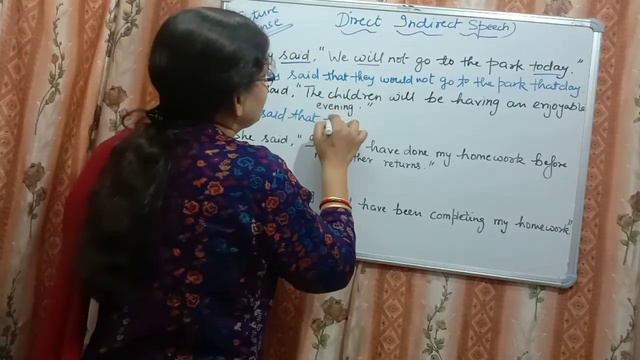 Future
Direct Indirect Speech)
Tense
said, "We will not go to the park today."
said that they would not go to the park that day
said, "The children will be having an enjoyable
evening."
said that
she said, "
have done my homework before
returns."
have been completing my homework"